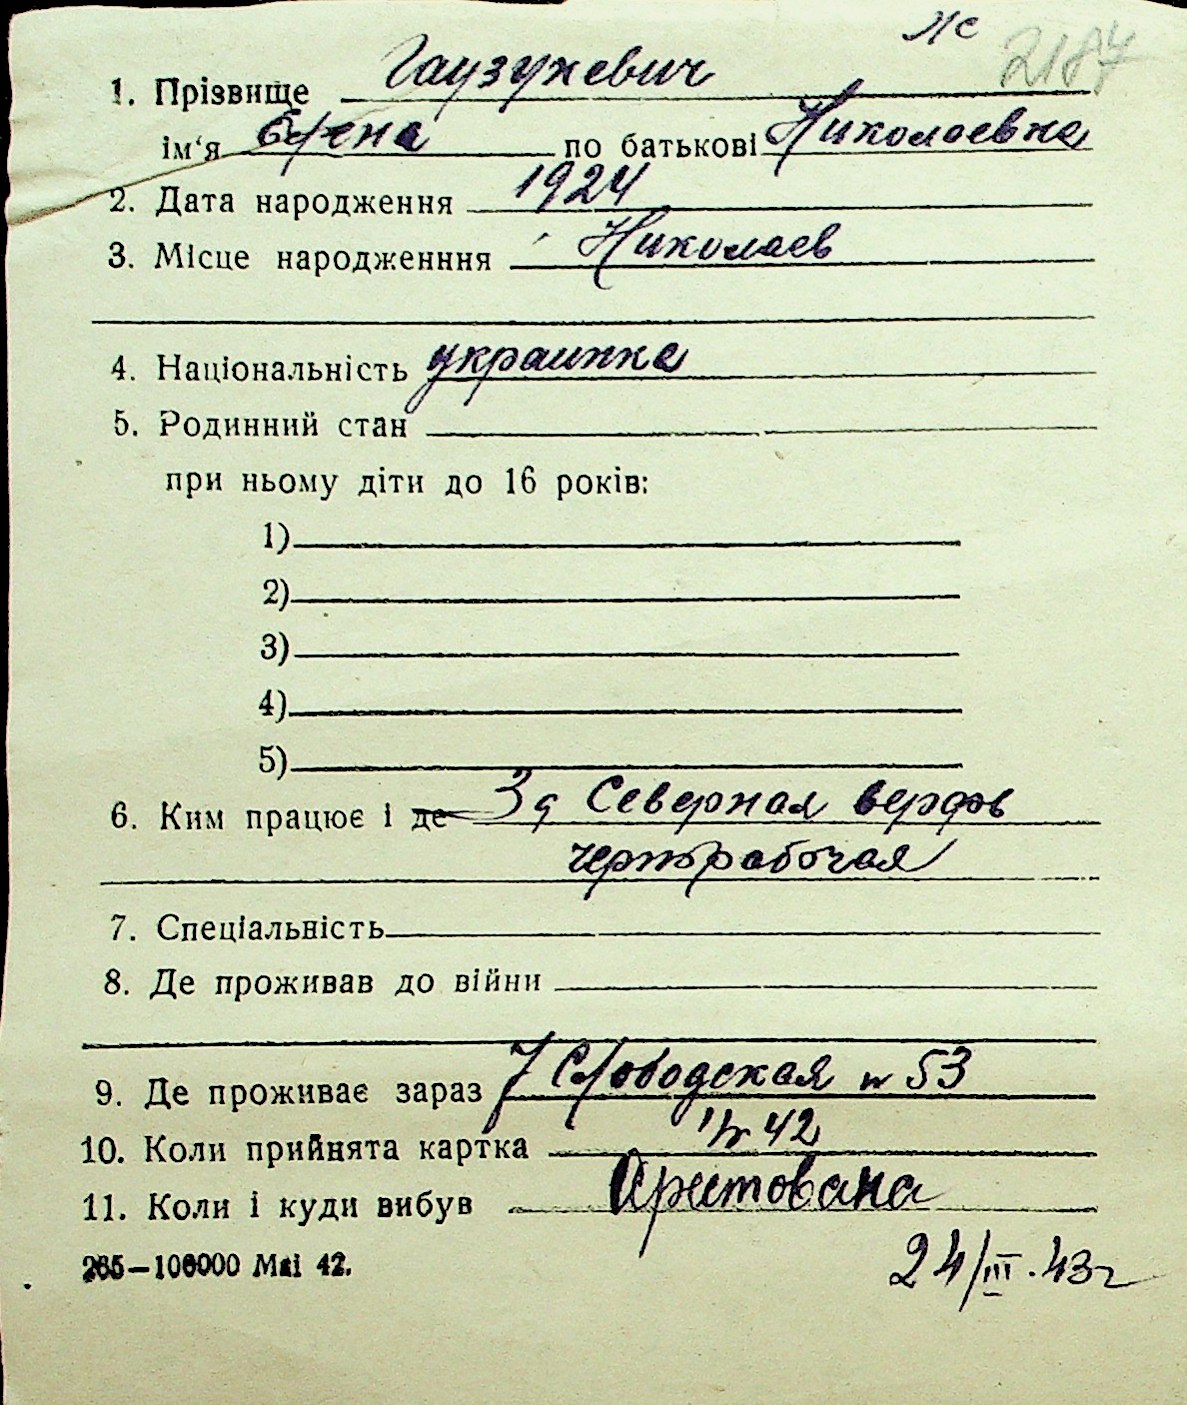 2187
1. Прізвище Гаузухевич
ім‘я Елена по батькові Николаевна
2. Дата народження 1924
3. Місце народженння Николаев
4. Національність украинка
5. Родинний стан
при ньому діти до 16 років:
1)
2)
3)
4)
5)
6. Ким працює і де Северная верфь
чернорабочая
7. Спеціальність
8. Де проживав до війни
9. Де проживає зараз 7 Слободская № 53
10. Коли прийнята картка 42
11. Коли і куди вибув Арештована
265—100000 Маі 42.
24/III.43г